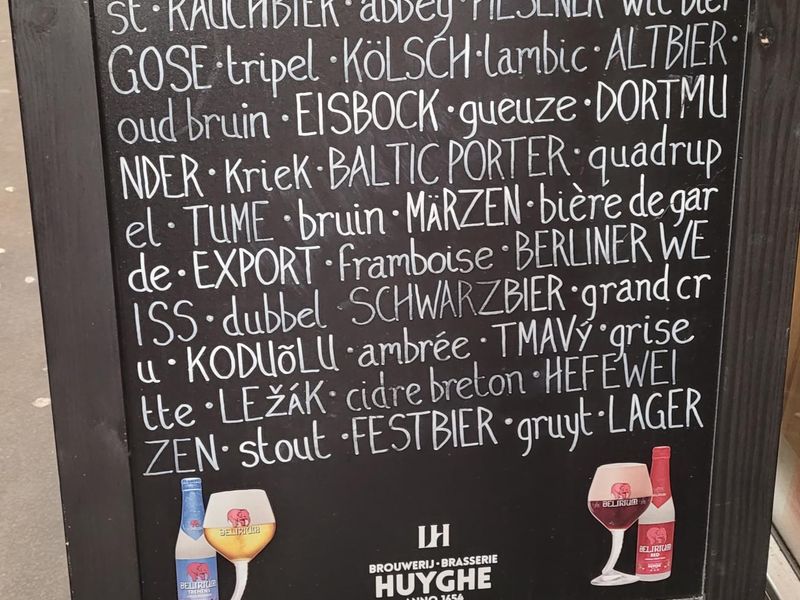 st · RAUCHBIER · abbey · PILSENER · wit bier
GOSE · tripel · KÖLSCH · lambic · ALTBIER ·
oud bruin · EISBOCK · gueuze · DORTMU
NDER · Kriek · BALTIC PORTER · quadrup
el · TUME · bruin · MÄRZEN · bière de gar
de · EXPORT · framboise · BERLINER WE
ISS · dubbel · SCHWARZBIER · grand cr
u · KODUÕLU · ambrée · TMAVÝ · grise
tte · LEŽÁK · cidre breton · HEFEWEI
ZEN · stout · FESTBIER · gruyt · LAGER
DELIRIUM
DELIRIUM
TREMENS
DELIRIUM
DELIRIUM
RED
HUYGHE
LH
BROUWERIJ · BRASSERIE
HUYGHE
ANNO 1654